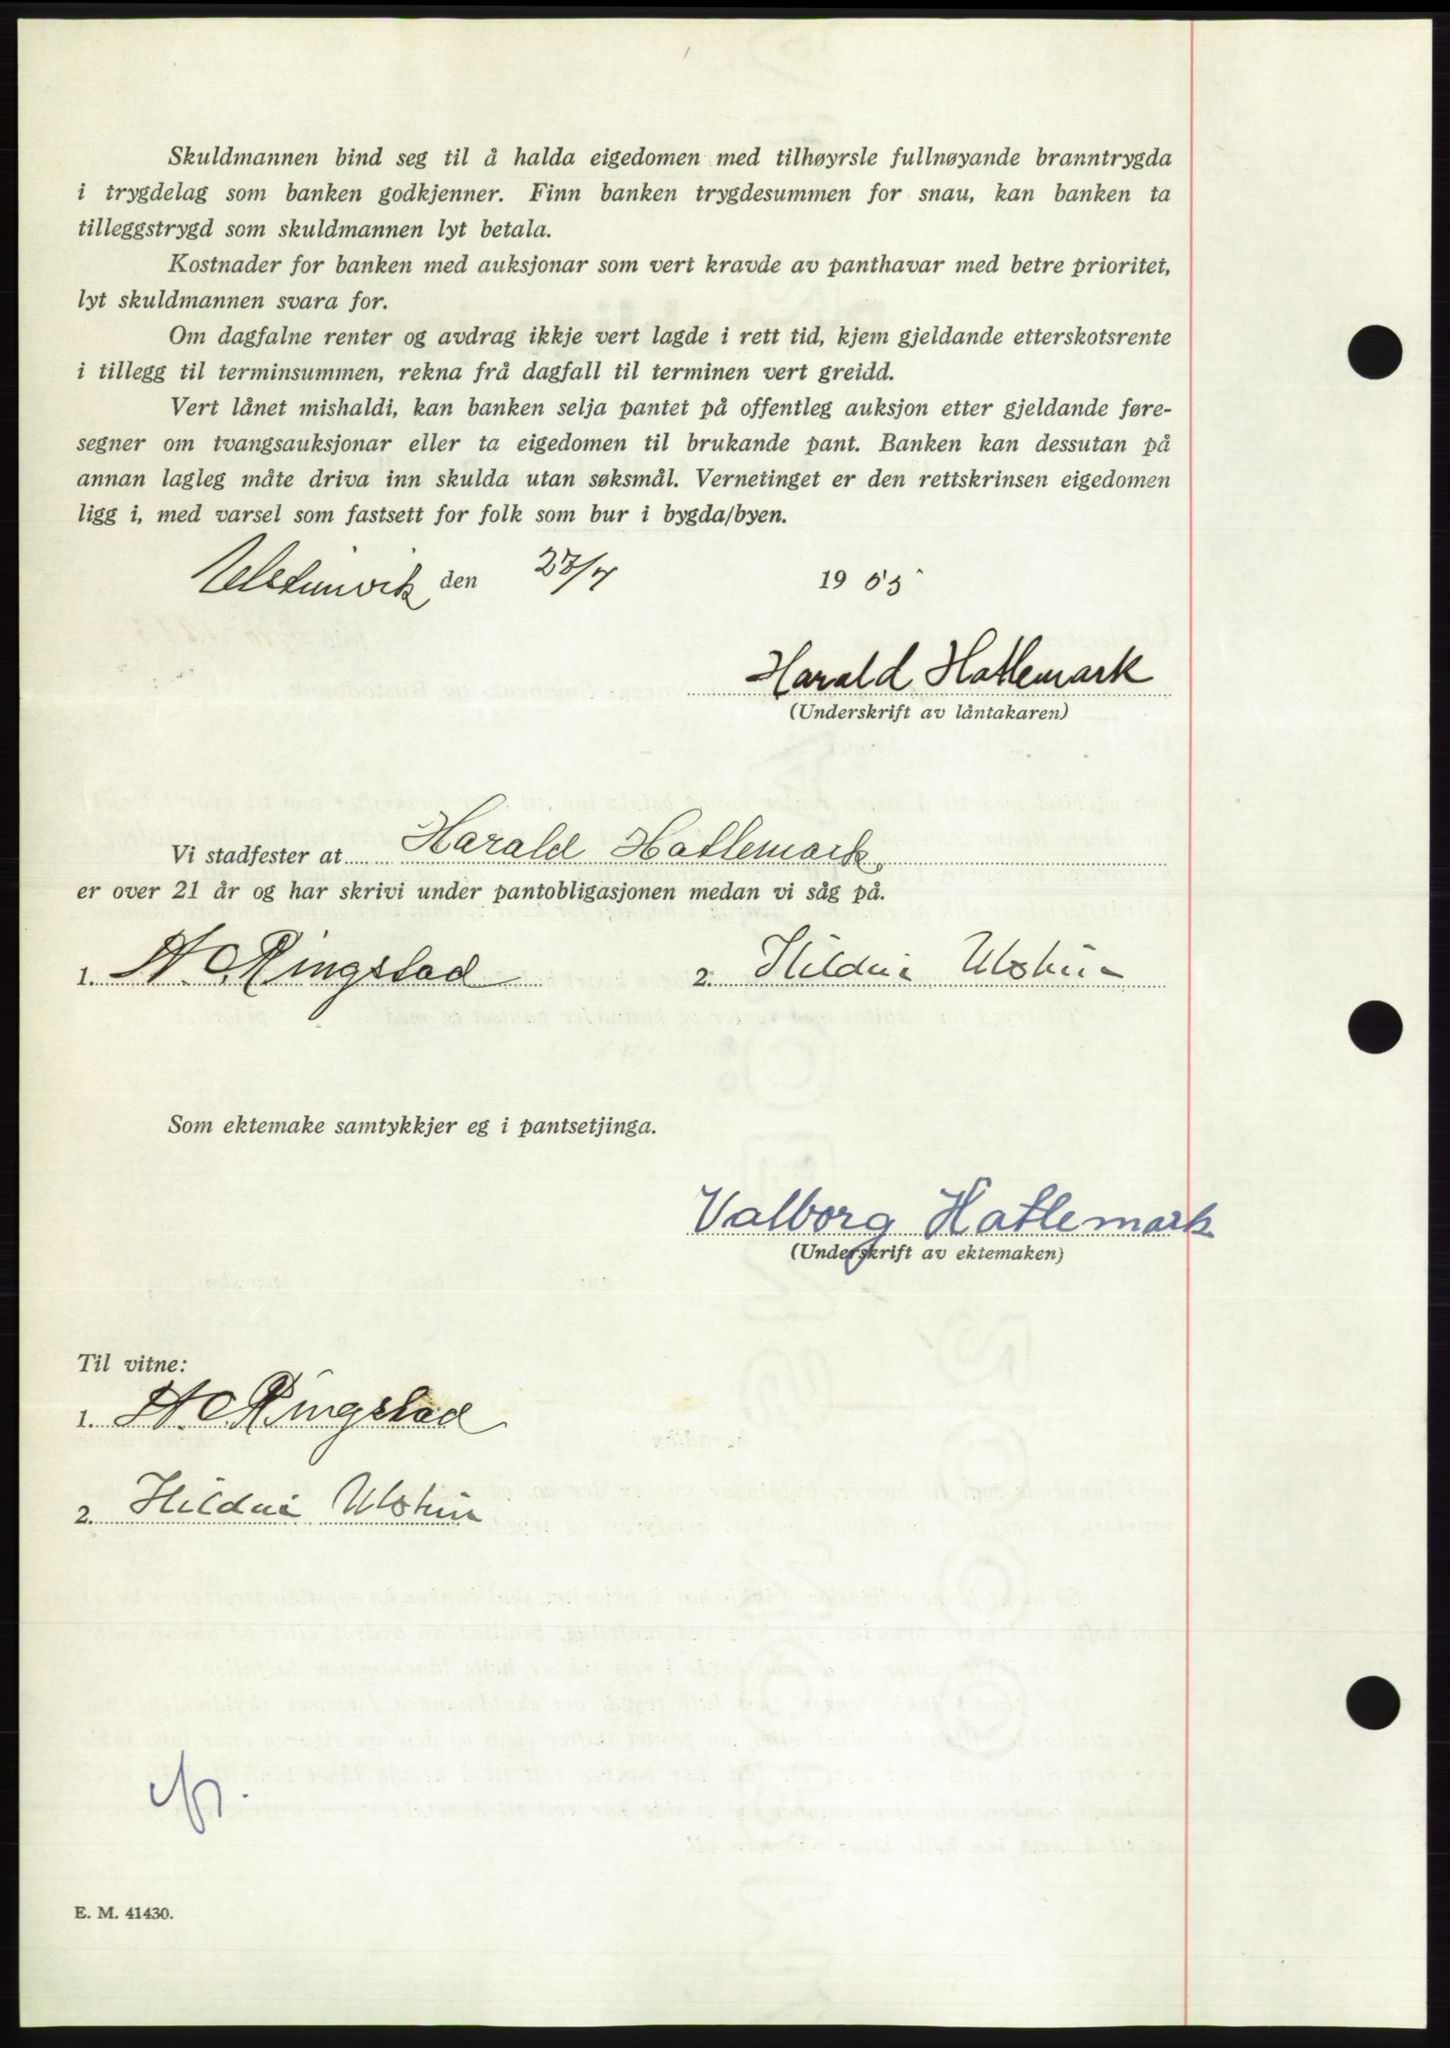 Skuldmannen bind seg til å halda eigedomen med tilhøyrsle fullnøyande branntrygda
i trygdelag som banken godkjenner. Finn banken trygdesummen for snau, kan banken ta
tilleggstrygd som skuldmannen lyt betala.
Kostnader for banken med auksjonar som vert kravde av panthavar med betre prioritet,
lyt skuldmannen svara for.
Om dagfalne renter og avdrag ikkje vert lagde i rett tid, kjem gjeldande etterskotsrente
i tillegg til terminsummen, rekna frå dagfall til terminen vert greidd.
Vert lånet mishaldi, kan banken selja pantet på offentleg auksjon etter gjeldande føre-
segner om tvangsauksjonar eller ta eigedomen til brukande pant. Banken kan dessutan på
annan lagleg måte driva inn skulda utan søksmål. Vernetinget er den rettskrinsen eigedomen
ligg i, med varsel som fastsett for folk som bur i bygda/byen.
Ulsteinvik den 27/7 1955
Harald Hatlemark
(Underskrift av låntakaren)
Vi stadfester at Harald Hatlemark,
er over 21 år og har skrivi under pantobligasjonen medan vi såg på.
1. Ringstad 2. Ulstein
Som ektemake samtykkjer eg i pantsetjinga.
Valborg Hatlemark
(Underskrift av ektemaken)
Til vitne:
1. Ringstad
2. Ulstein
E. M. 41430.